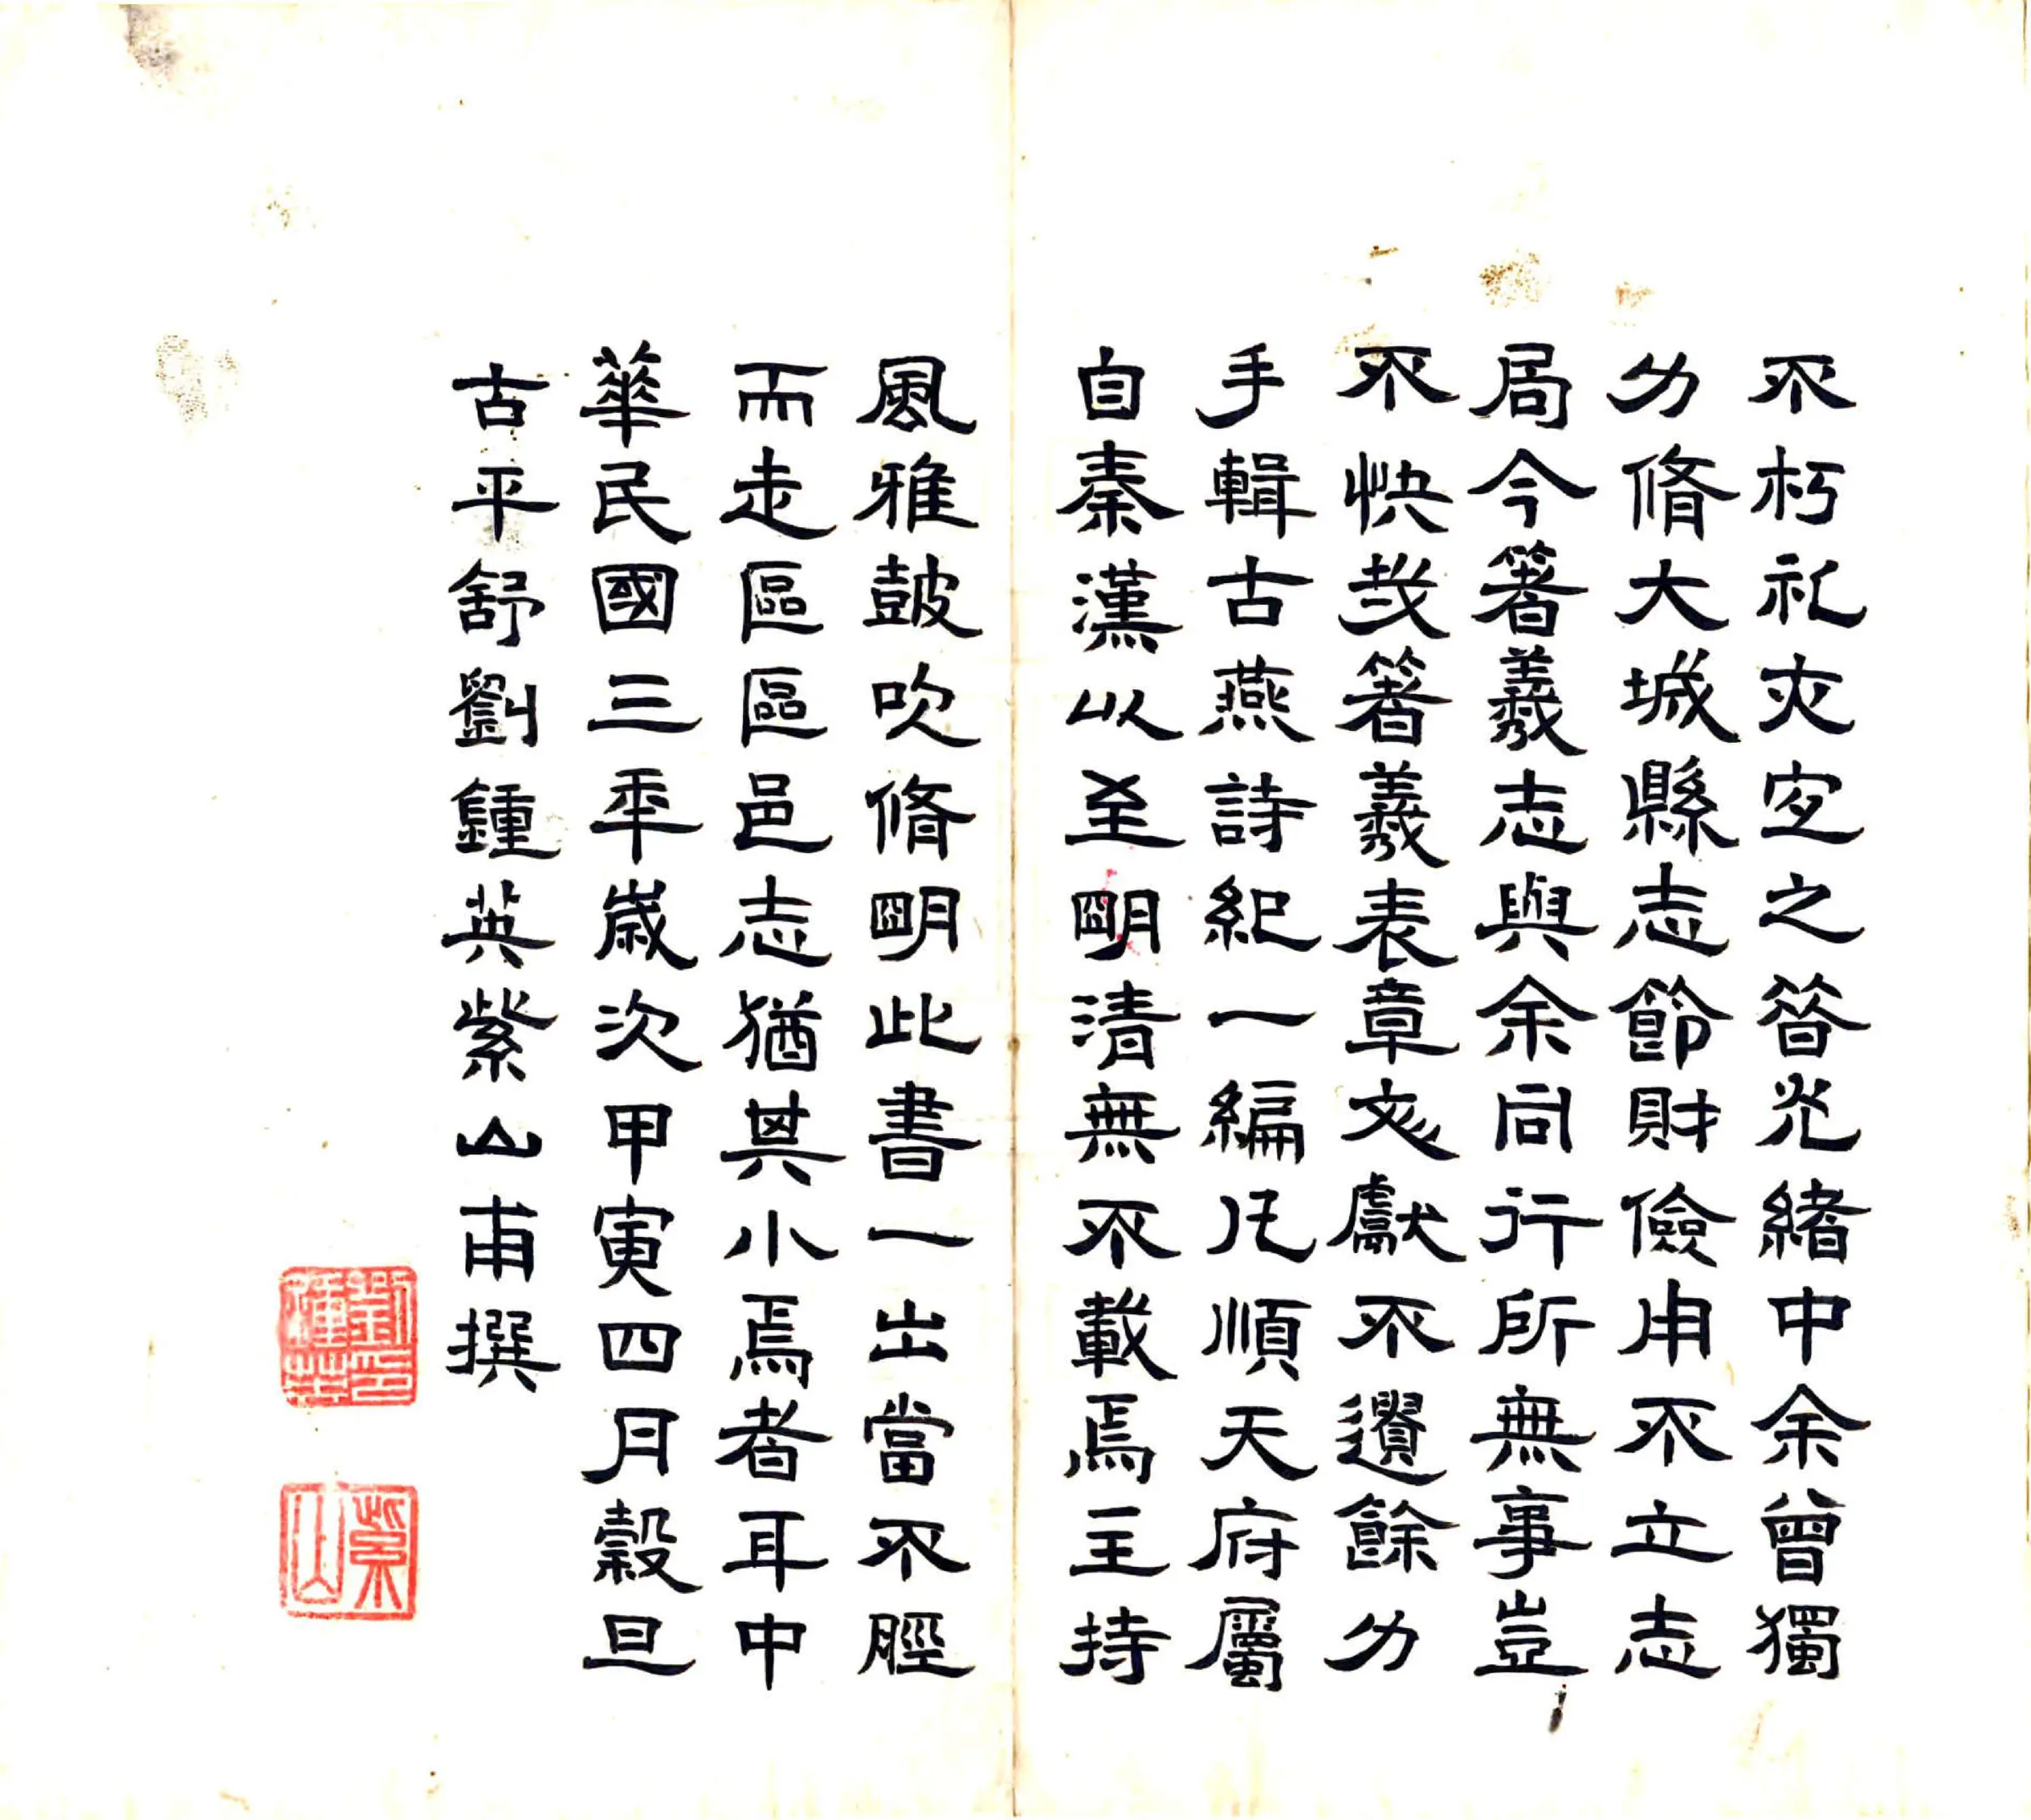 不朽礼灾定之答光緒中余曾獨
力脩大城縣志節財儉用不立志
局今箸羲志與余同行所無事豈
不快哉箸羲表章文獻不遺餘力
手輯古燕詩紀一編凡順天府屬
自秦漢以至明清無不載焉主持
風雅鼓吹脩明此書一出當不脛
而走區區邑志猶其小焉者耳中
華民國三年歲次甲寅四月穀旦
古平舒劉鍾英紫山甫撰
劉鍾英印
紫山